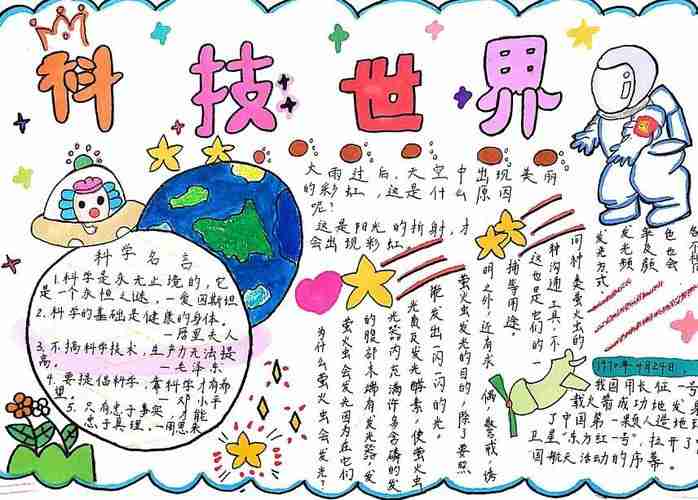 科技世界
大雨过后,天空中出现美丽
的彩虹,这是什么原因
呢?
这是阳光的折射,才
会出现彩虹。
科学名言
1.科学是永无止境的,它
是一个永恒之迷。—爱因斯坦
2.科学的基础是健康的身体。
—居里夫人
3.不搞科学技术,生产力无法提
高。 —毛泽东
4.要提倡科学,靠科学才有希
望。 —邓小平
5.只有忠于事实,才能
忠于真理。—周恩来
为什么萤火虫会发光?
萤火虫会发光因为在它们
的腹部末端有发光器,发
光器内充满许多含磷的发
光质及发光酵素,使萤火虫
能发出一闪一闪的光。
萤火虫发光的目的,除了要照
明之外,还有求偶,警戒,诱
捕等用途。
这也是它们的一
种沟通工具,不一
同种类萤火虫的
发光方式
发光频
率及颜
色也会
1970年4月24日,
我国用长征一号
载火箭成功地发
了中国第一颗人造地
卫星"东方红一号",拉开了
国航天活动的序幕。